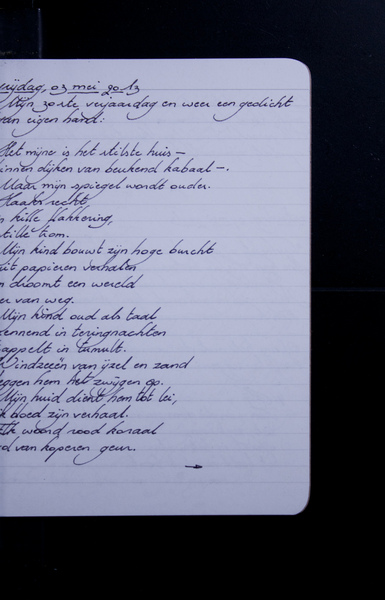 rijdag, 03 mei 2013
Mijn 30ste verjaardag en weer een gedicht
van eigen hand:
Het mijne is het stilste huis –
innen dijken van beukend kabaal –.
Maar mijn spiegel wordt ouder.
Haaks recht
n kille flakkering,
stille trom.
Mijn kind bouwt zijn hoge burcht
uit papieren verhalen
n droomt een wereld
er van weg.
Mijn hond oud als taal
rennend in teringnachten
appelt in tumult.
Windzeeën van ijzel en zand
eggen hem het zwijgen op.
Mijn huid dient hem tot lei,
ik bloed zijn verhaal.
Elk woord rood koraal
d van koperen geur.